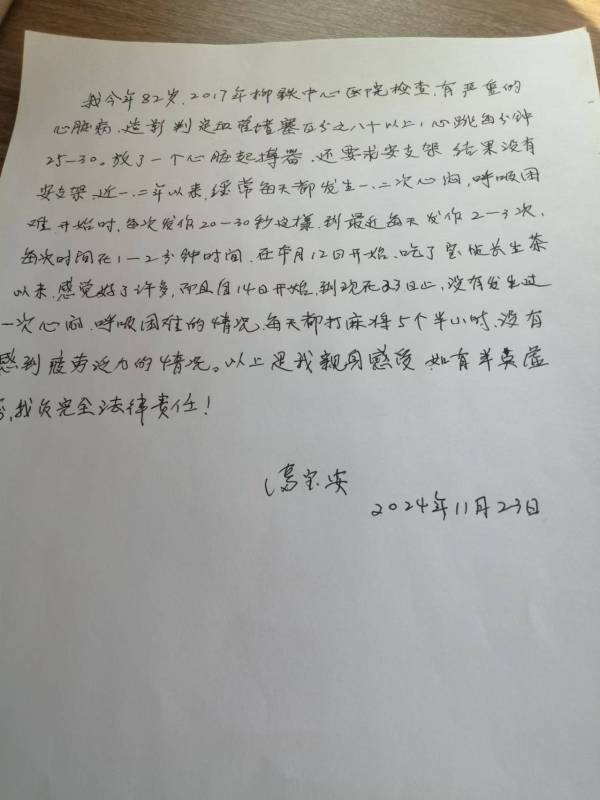 我今年82岁,2017年柳铁中心医院检查,有严重的
心脏病,造影判定血管堵塞百分之八十以上,心跳每分钟
25-30。放了一个心脏起搏器,还要求安支架,结果没有
安支架,近一、二年以来,经常每天都发生一、二次心闷,呼吸困
难开始时,每次发作20-30秒这样,到最近每天发作2-3次,
每次时间在1-2分钟时间,在本月12日开始,吃了长生茶
以来,感觉好了许多,而且自14日开始,到现在23日止,没有发生过
一次心闷,呼吸困难的情况,每天都打麻将5个半小时,没有
感到疲劳乏力的情况。以上是我亲身感受,如有半真虚
,我负完全法律责任!
宝安
2024年11月23日